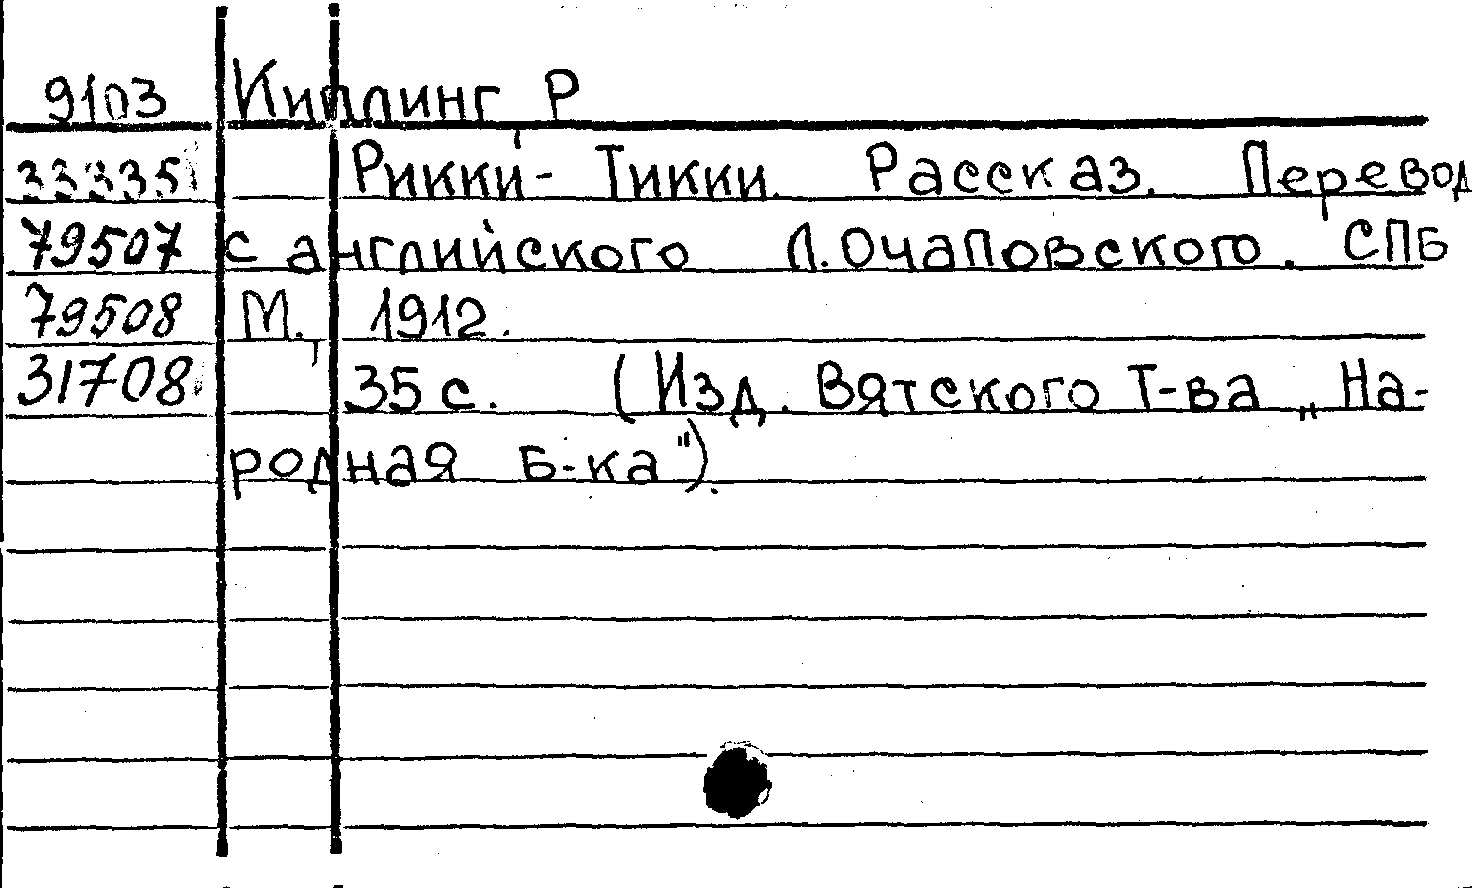 9103 Киплинг Р
33335 Рикки-Тикки. Рассказ. Перевод
79507 с английского Л. Очаповского. СПБ
79508 М., 1912.
31708 35 с. (Изд. Вятского Т-ва „На-
родная Б-ка").